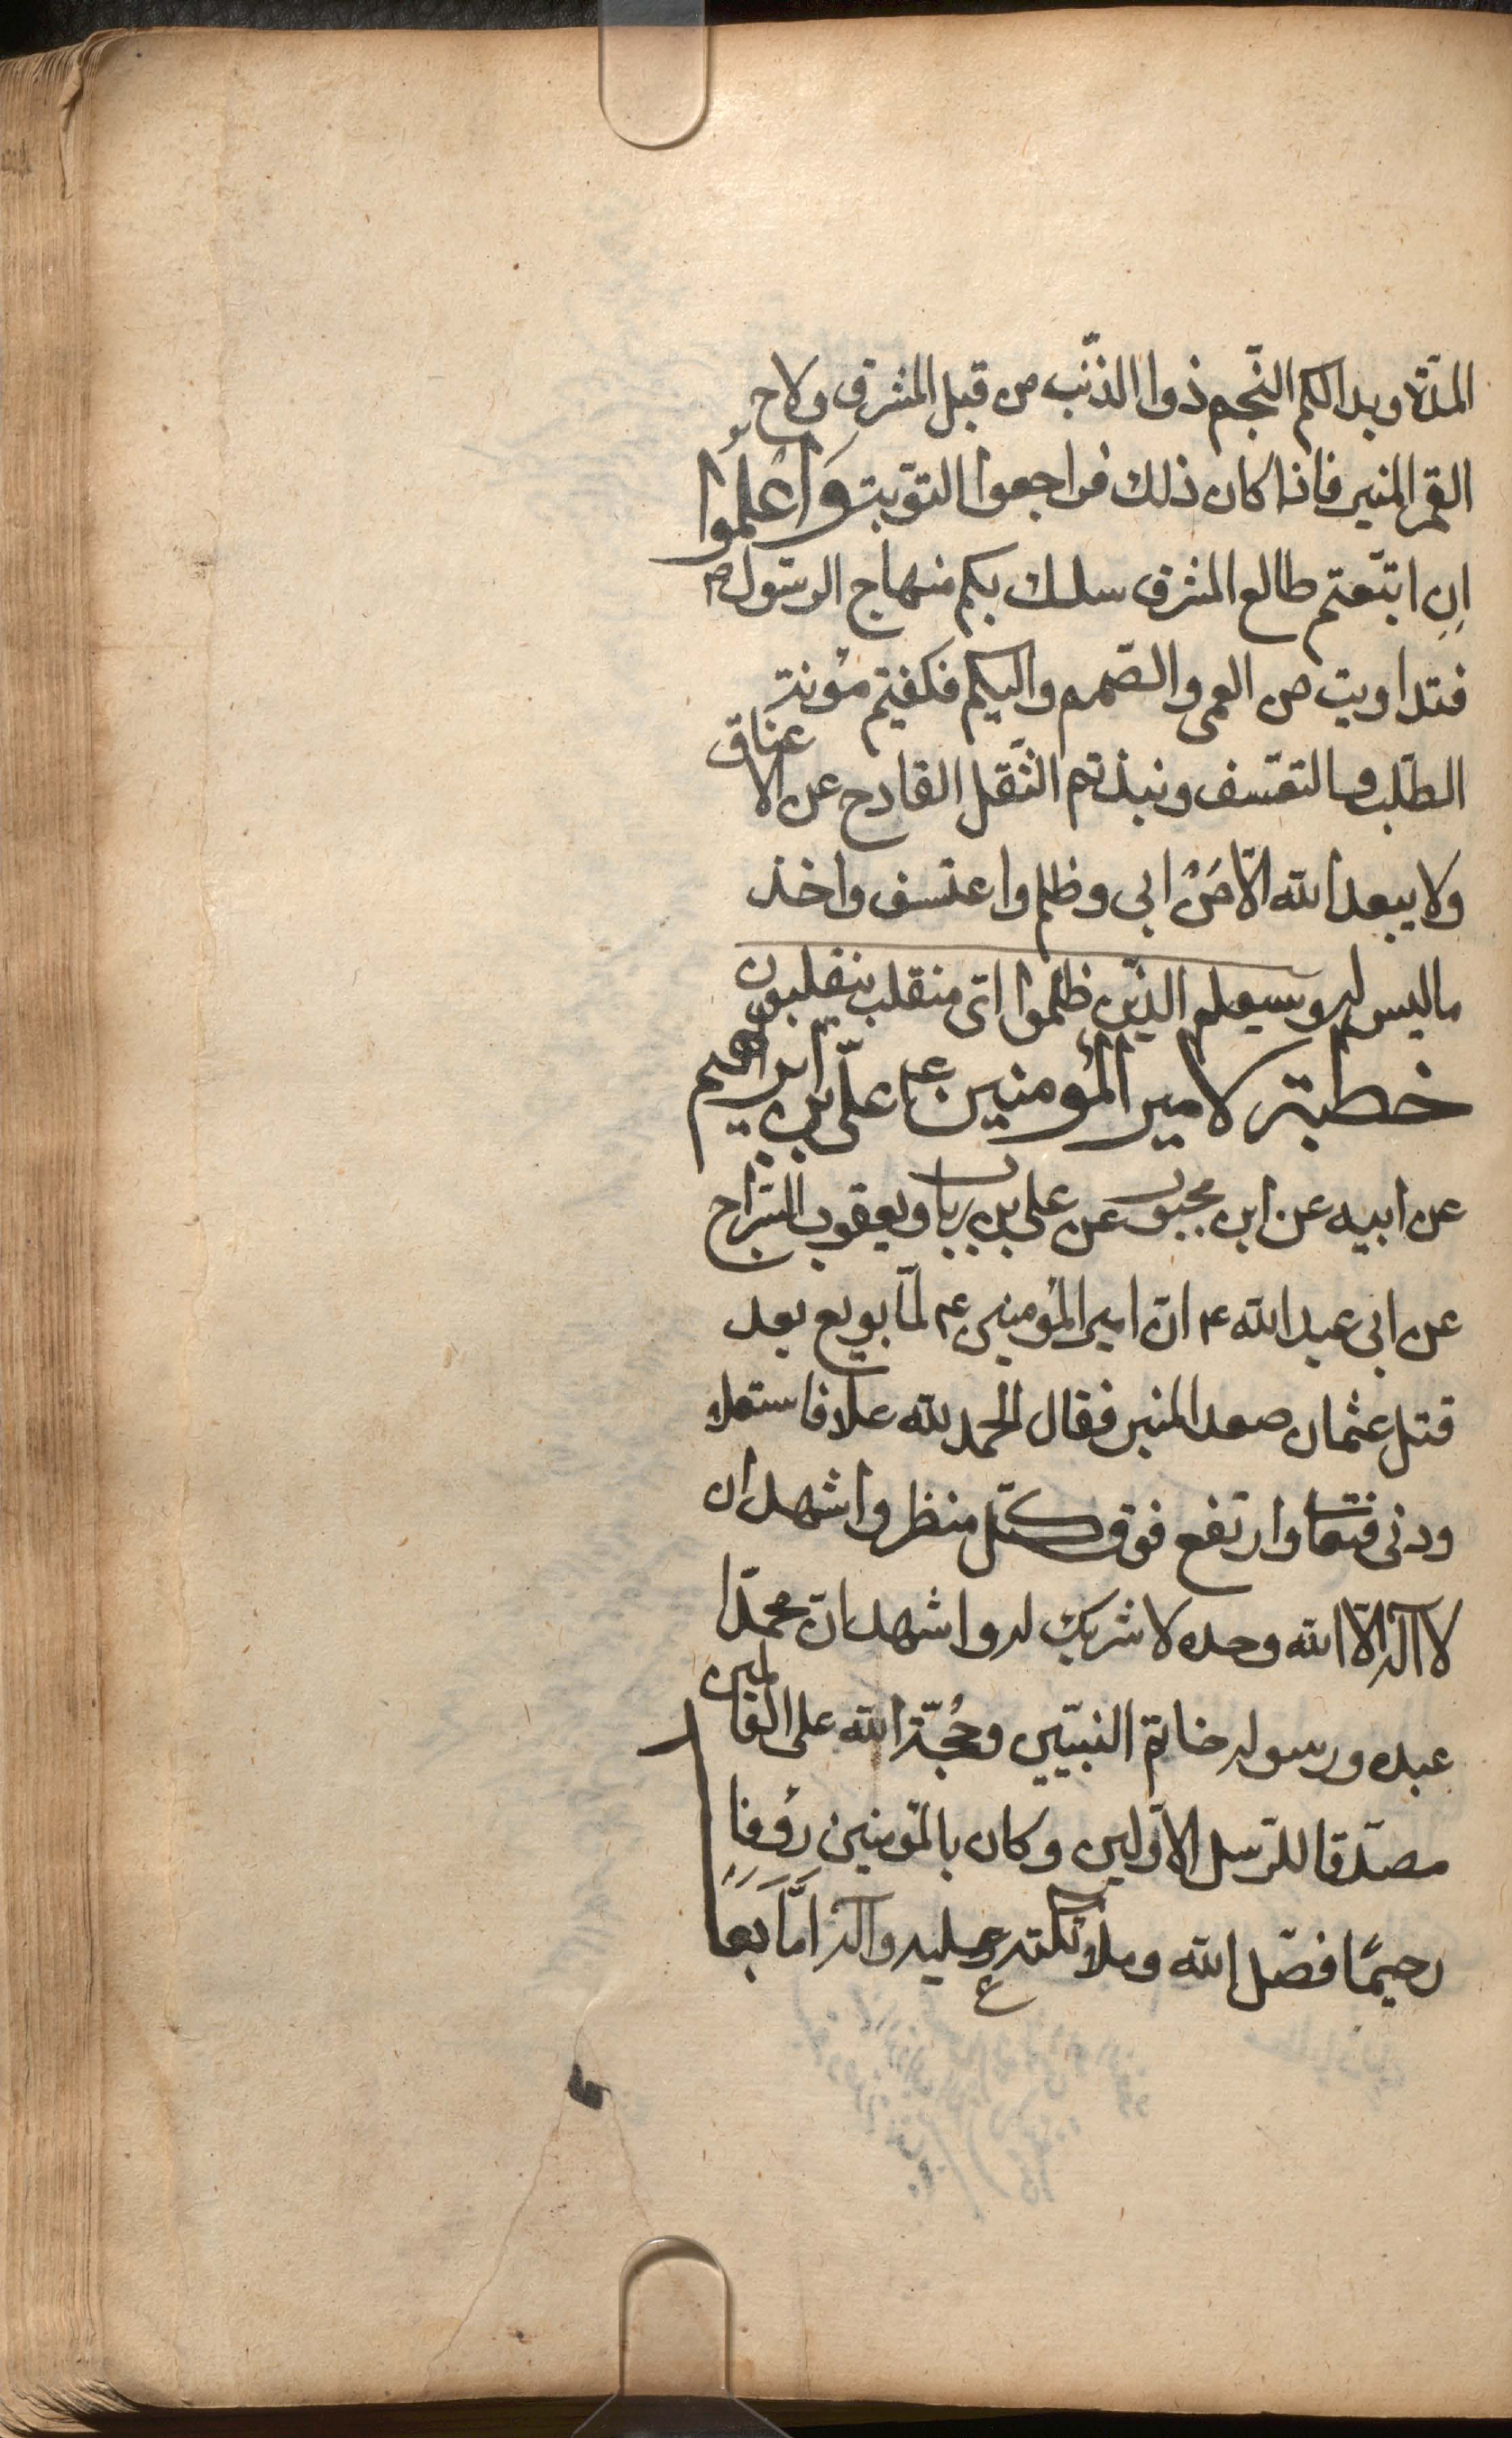 المدّة وبدا لكم النّجم ذوا الذّنب من قبل المشرق ولاح
القمر المنير فاذا كان ذلك فراجعوا التوّبة وَاعْلَمُوا
اِنِ اتّبعتم طالع المشرق سلك بكم منهاج الرسّول ص
فتداويت من العمى والصّمم والبكم فكفيتم مؤنة
الطّلب والتعسّف ونبذتم الثّقل القادح عن الاعناق
ولا يبعد الله الّا مَنْ ابى وظلم واعتسف واخذ
ما ليس له وسيعلم الذّين ظلموا اىّ منقلب ينقلبون
خطبة لامير المؤمنين ع علّى بن ابراهيم
عن ابيه عن ابن محبوب عن على بن رياب ويعقوب السّراج
عن ابى عبد الله ع انّ امير المؤمنين ع لمّا بويع بعد
قتل عثمان صعد المنبر فقال الحمد لله علا فاستعلا
ودنى فتعا وارتفع فوق كلّ منظر واشهد ان
لا اله الّا الله وحده لا شريك له واشهد انّ محمدّا
عبده ورسوله خاتم النبيّين وحُجّة الله على العالمين
مصدّقا للرّسل الاوّلين وكان بالمؤمنين رؤفا
رحيمًا فصّل الله وملائكته عليه واله امّا بعد